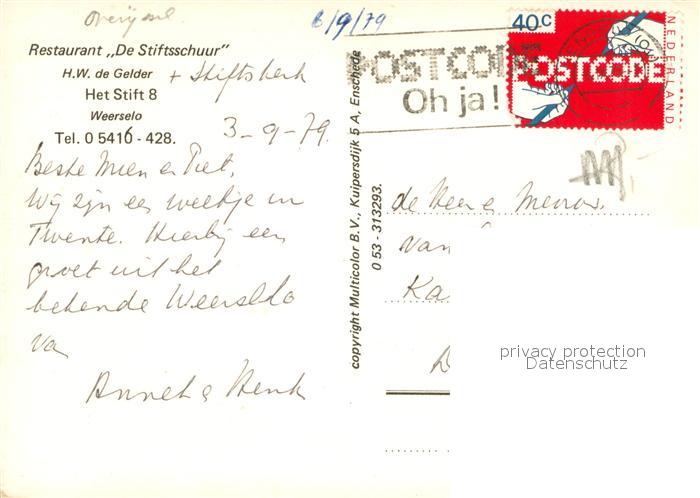 Overijssel
6/9/79
Restaurant „De Stiftsschuur"
H.W. de Gelder
+ Stiftskerk
Het Stift 8
Weerselo
Tel. 0 5416 - 428.
3-9-79.
Beste Mien en Piet,
Wij zijn een weekje in
Twente. Hierbij een
groet uit het
bekende Weerselo
van
Annet & Henk
copyright Multicolor B.V., Kuipersdijk 5 A, Enschede
0 53-313293.
POSTCODE
Oh ja!
40c
POSTCODE
NEDERLAND
de Heer & Mevrouw
van
Ka
D
privacy protection
Datenschutz